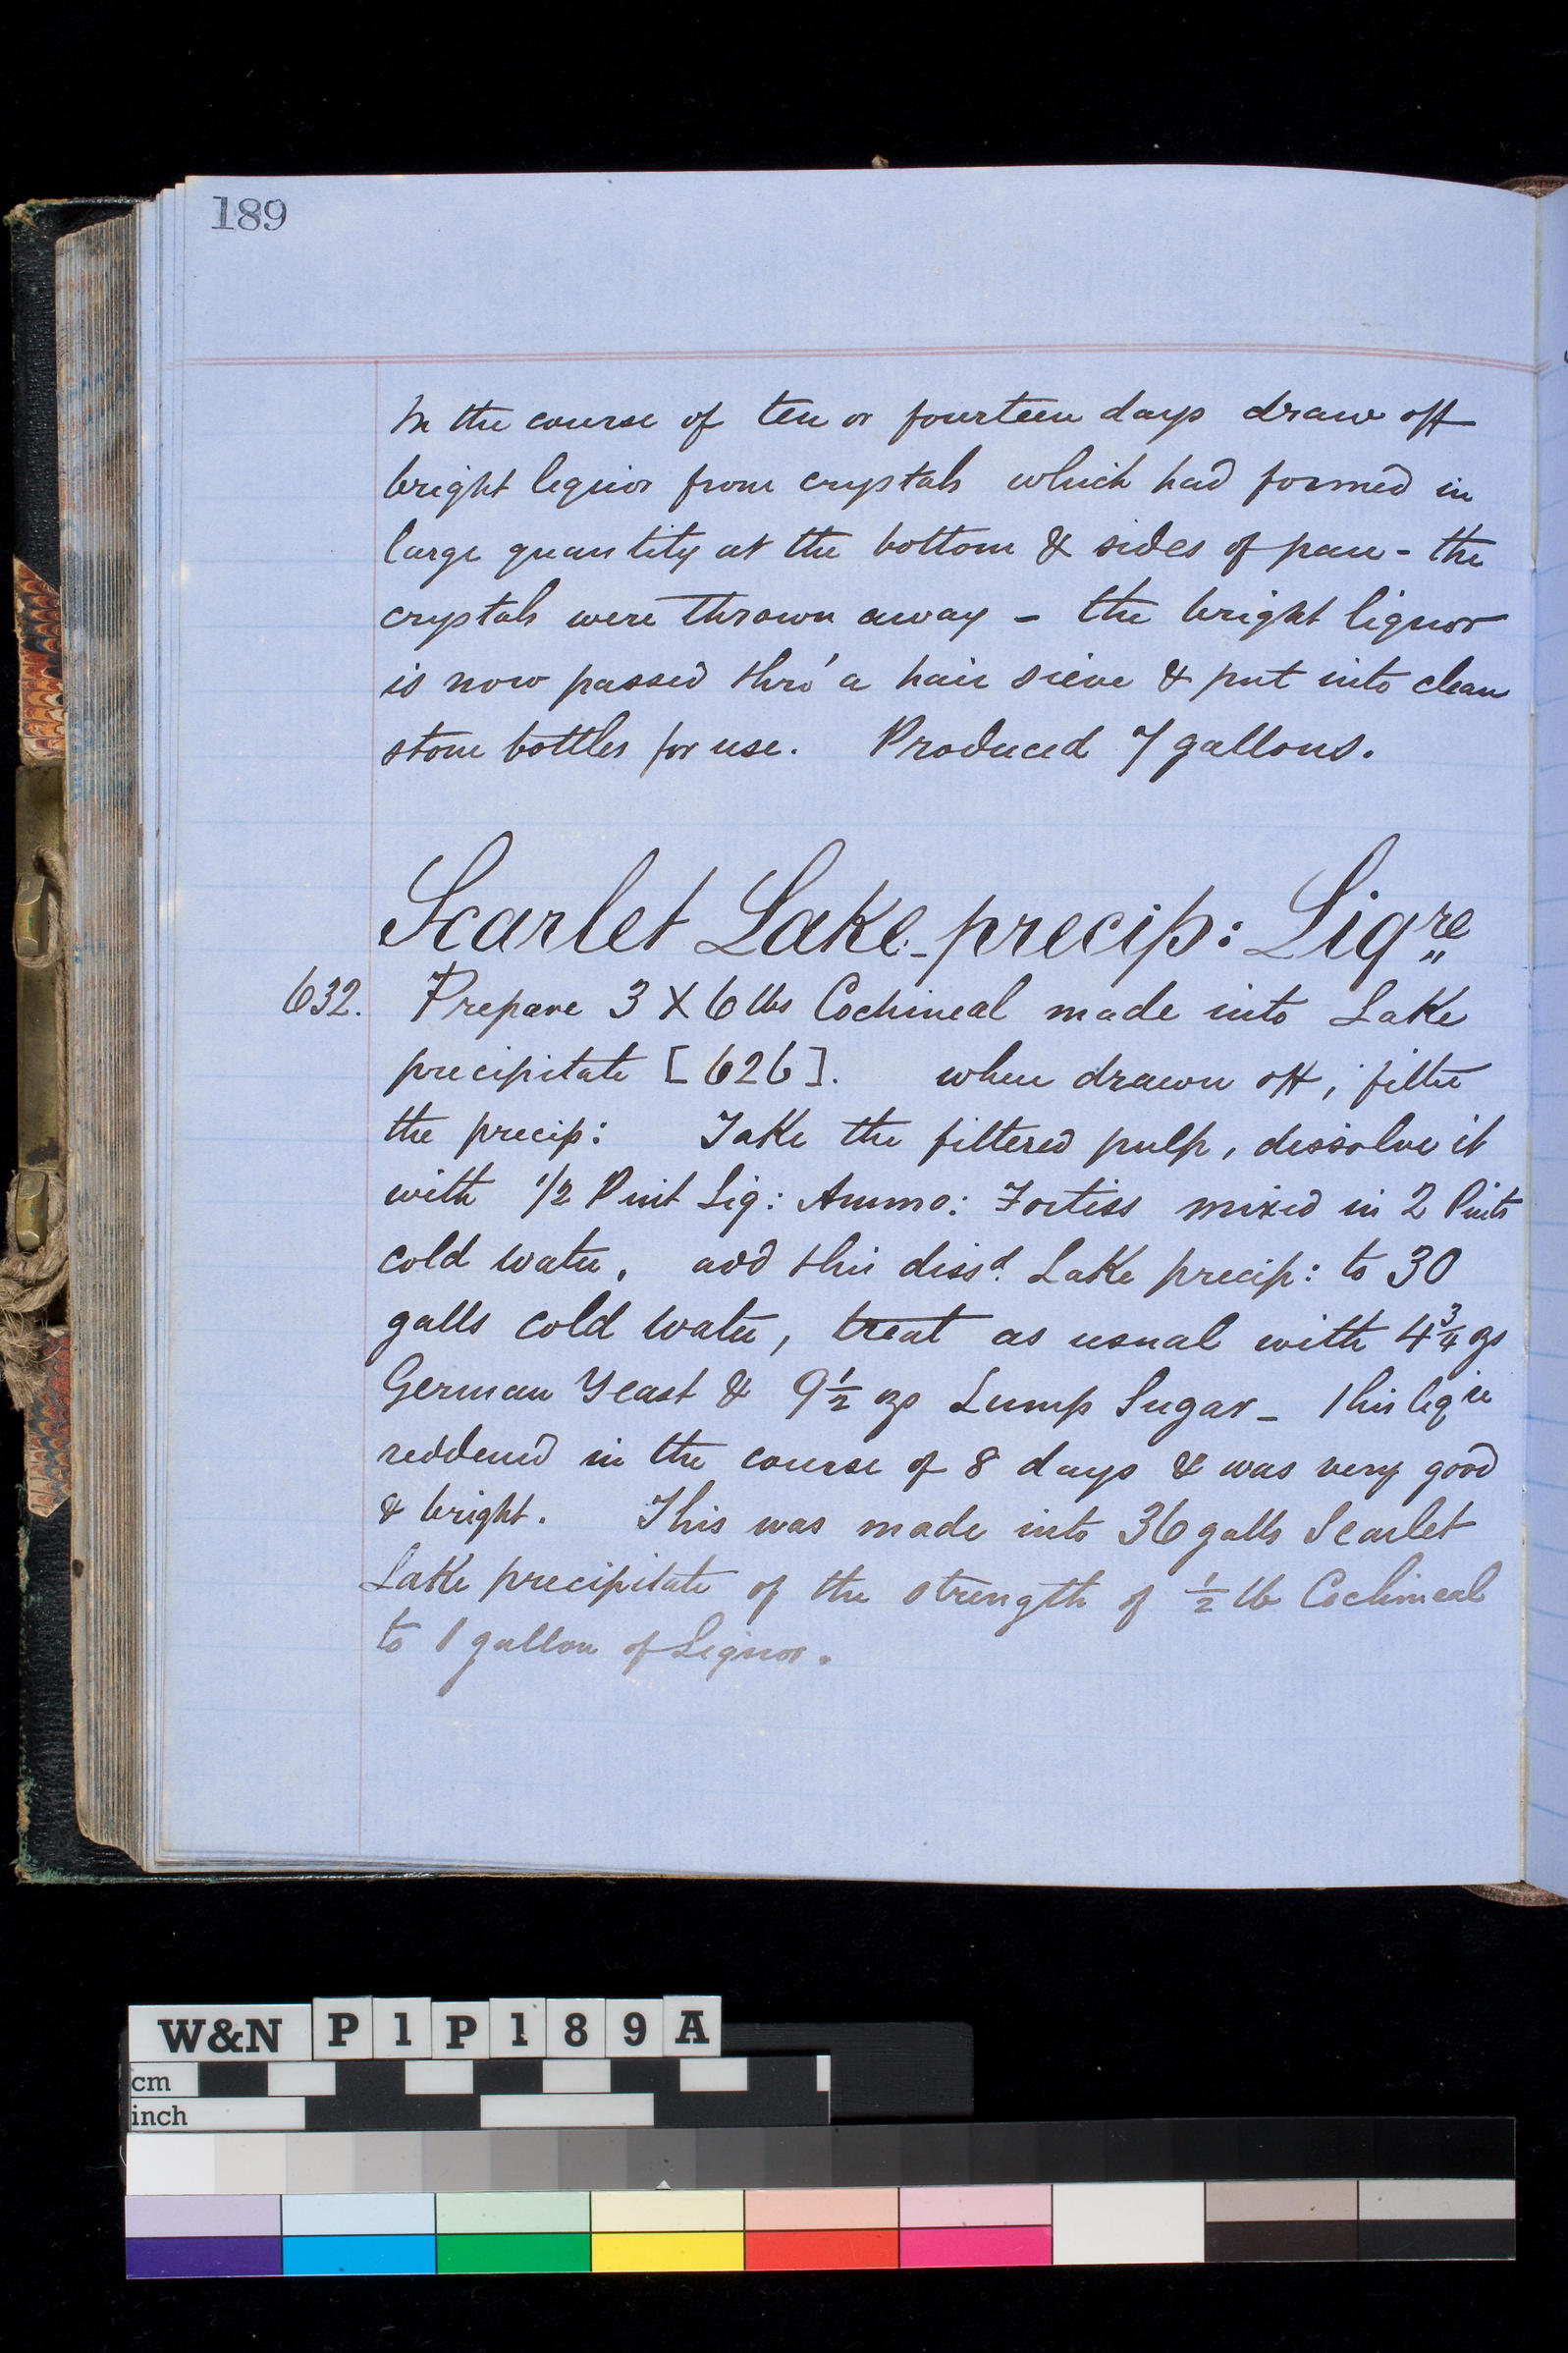 189
In the course of ten or fourteen days draw off
bright liquor from crystals which had formed in
large quantity at the bottom & sides of pan - the
crystals were thrown away - the bright liquor
is now passed thro' a hair sieve & put into clean
stone bottles for use. Produced 7 gallons.
Scarlet Lake - precip: Liqre
632. Prepare 3 X 6 lbs Cochineal made into Lake
precipitate [626]. when drawn off, filter
the precip: Take the filtered pulp, dissolve it
with 1/2 Pint Liq: Ammo: Fortiss mixed in 2 Pints
cold water, add this dissd. Lake precip: to 30
galls cold water, treat as usual with 4 3/4 ozs
German Yeast & 9 1/2 ozs Lump Sugar - This liqre
reddened in the course of 8 days & was very good
& bright. This was made into 36 galls Scarlet
Lake precipitate of the strength of 1/2 lb Cochineal
to 1 gallon of Liquor.
W&N P1P189A
cm
inch